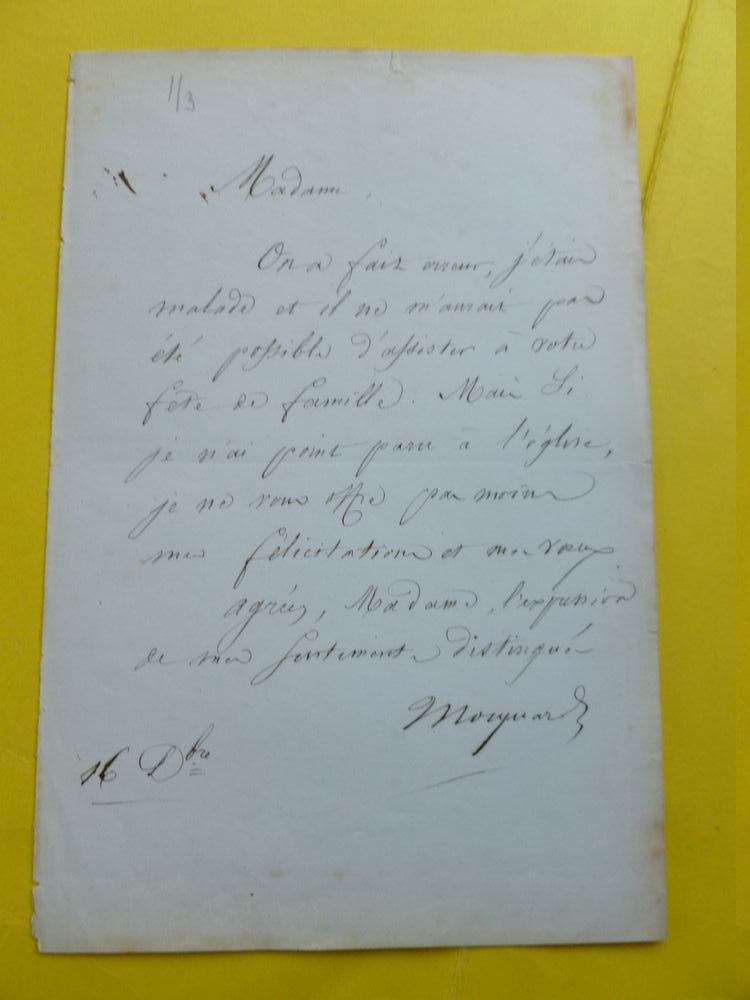 1/3
Madame,
On a fait erreur, j'étais
malade et il ne m'aurait pas
été possible d'assister à votre
fête de famille. Mais si
je n'ai point paru à l'église,
je ne vous offre pas moins
mes félicitations et mes vœux
agréez, Madame, l'expression
de mes sentiments distingués
Mocquard
16 Dbre